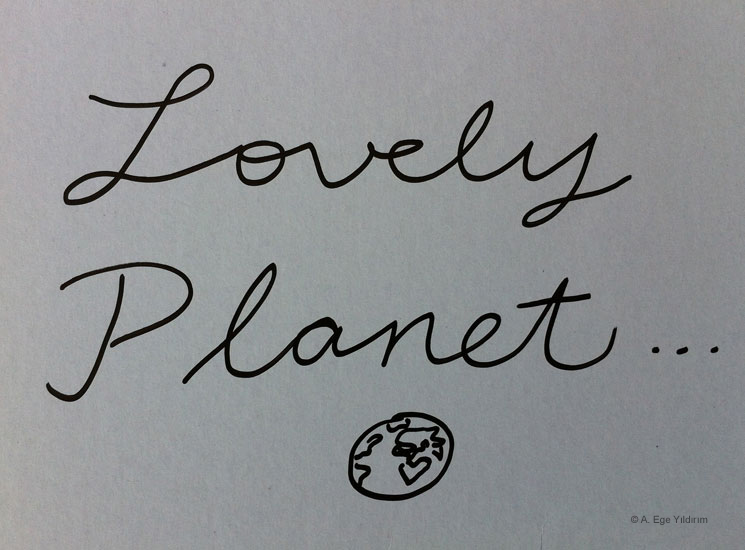 Lovely
Planet...
© A. Ege Yıldırım